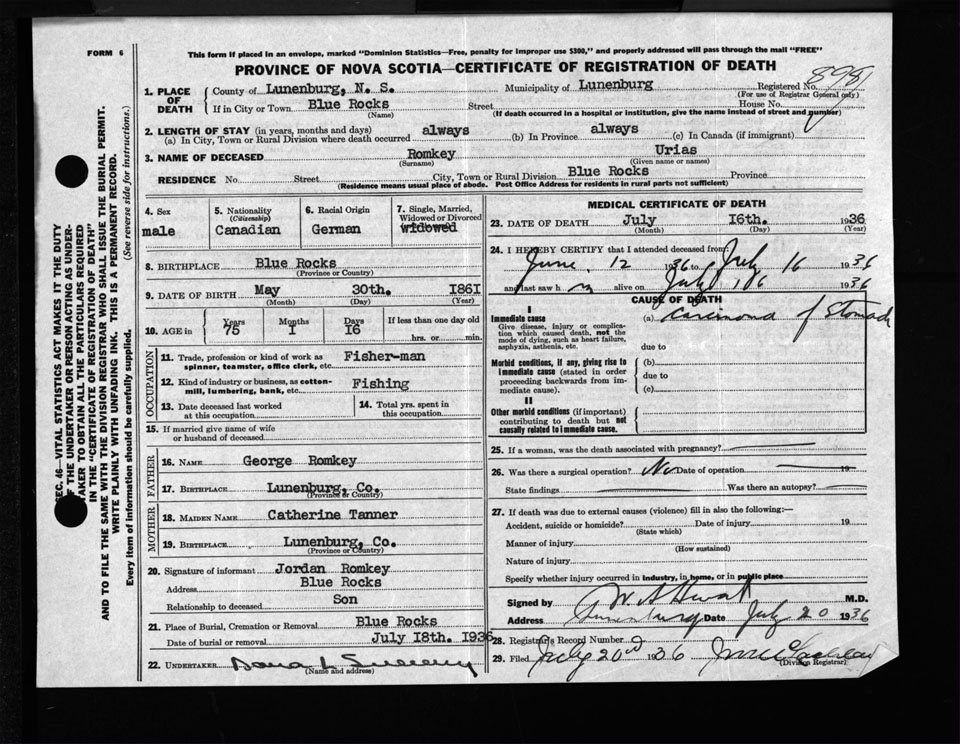 FORM 6
This form if placed in an envelope, marked "Dominion Statistics—Free, penalty for improper use $300," and properly addressed will pass through the mail "FREE"
PROVINCE OF NOVA SCOTIA—CERTIFICATE OF REGISTRATION OF DEATH
SEC. 46—VITAL STATISTICS ACT MAKES IT THE DUTY
OF THE UNDERTAKER OR PERSON ACTING AS UNDER-
TAKER TO OBTAIN ALL THE PARTICULARS REQUIRED
IN THE "CERTIFICATE OF REGISTRATION OF DEATH"
AND TO FILE THE SAME WITH THE DIVISION REGISTRAR WHO SHALL ISSUE THE BURIAL PERMIT.
WRITE PLAINLY WITH UNFADING INK. THIS IS A PERMANENT RECORD.
Every item of information should be carefully supplied. (See reverse side for instructions.)
1. PLACE OF DEATH
County of Lunenburg, N. S. Municipality of Lunenburg Registered No. 8981
(For use of Registrar General only)
If in City or Town Blue Rocks Street House No.
(Name) (If death occurred in a hospital or institution, give the name instead of street and number)
2. LENGTH OF STAY (in years, months and days)
(a) In City, Town or Rural Division where death occurred always (b) In Province always (c) In Canada (if immigrant)
3. NAME OF DECEASED Romkey Urias
(Surname) (Given name or names)
RESIDENCE No Street City, Town or Rural Division Blue Rocks Province
(Residence means usual place of abode. Post Office Address for residents in rural parts not sufficient)
4. Sex male
5. Nationality (Citizenship) Canadian
6. Racial Origin German
7. Single, Married, Widowed or Divorced widowed
8. BIRTHPLACE Blue Rocks
(Province or Country)
9. DATE OF BIRTH May 30th. 1861
(Month) (Day) (Year)
10. AGE in Years 75 Months 1 Days 16 If less than one day old hrs. or min.
OCCUPATION
11. Trade, profession or kind of work as spinner, teamster, office clerk, etc. Fisher-man
12. Kind of industry or business, as cotton-mill, lumbering, bank, etc. Fishing
13. Date deceased last worked at this occupation
14. Total yrs. spent in this occupation
15. If married give name of wife or husband of deceased
FATHER
16. NAME George Romkey
17. BIRTHPLACE Lunenburg, Co.
(Province or Country)
MOTHER
18. MAIDEN NAME Catherine Tanner
19. BIRTHPLACE Lunenburg, Co.
(Province or Country)
20. Signature of informant Jordan Romkey
Address Blue Rocks
Relationship to deceased Son
21. Place of Burial, Cremation or Removal Blue Rocks
Date of burial or removal July 18th. 1936
22. UNDERTAKER
(Name and address)
MEDICAL CERTIFICATE OF DEATH
23. DATE OF DEATH July 16th. 1936
(Month) (Day) (Year)
24. I HEREBY CERTIFY that I attended deceased from
June 12 1936 to July 16 1936
and last saw h m alive on July 16 1936
CAUSE OF DEATH
I
Immediate cause (a) Carcinoma of Stomach
Give disease, injury or complication which caused death, not the mode of dying, such as heart failure, asphyxia, asthenia, etc.
due to
Morbid conditions, if any, giving rise to immediate cause (stated in order proceeding backwards from immediate cause).
(b)
due to
(c)
II
Other morbid conditions (if important) contributing to death but not causally related to immediate cause.
25. If a woman, was the death associated with pregnancy?
26. Was there a surgical operation? No Date of operation 19
State findings Was there an autopsy?
27. If death was due to external causes (violence) fill in also the following:—
Accident, suicide or homicide? Date of injury 19
(State which)
Manner of injury
(How sustained)
Nature of injury
Specify whether injury occurred in industry, in home, or in public place
Signed by M.D.
Address Lunenburg Date July 20 1936
28. Registrar's Record Number
29. Filed July 20nd 1936
(Division Registrar)